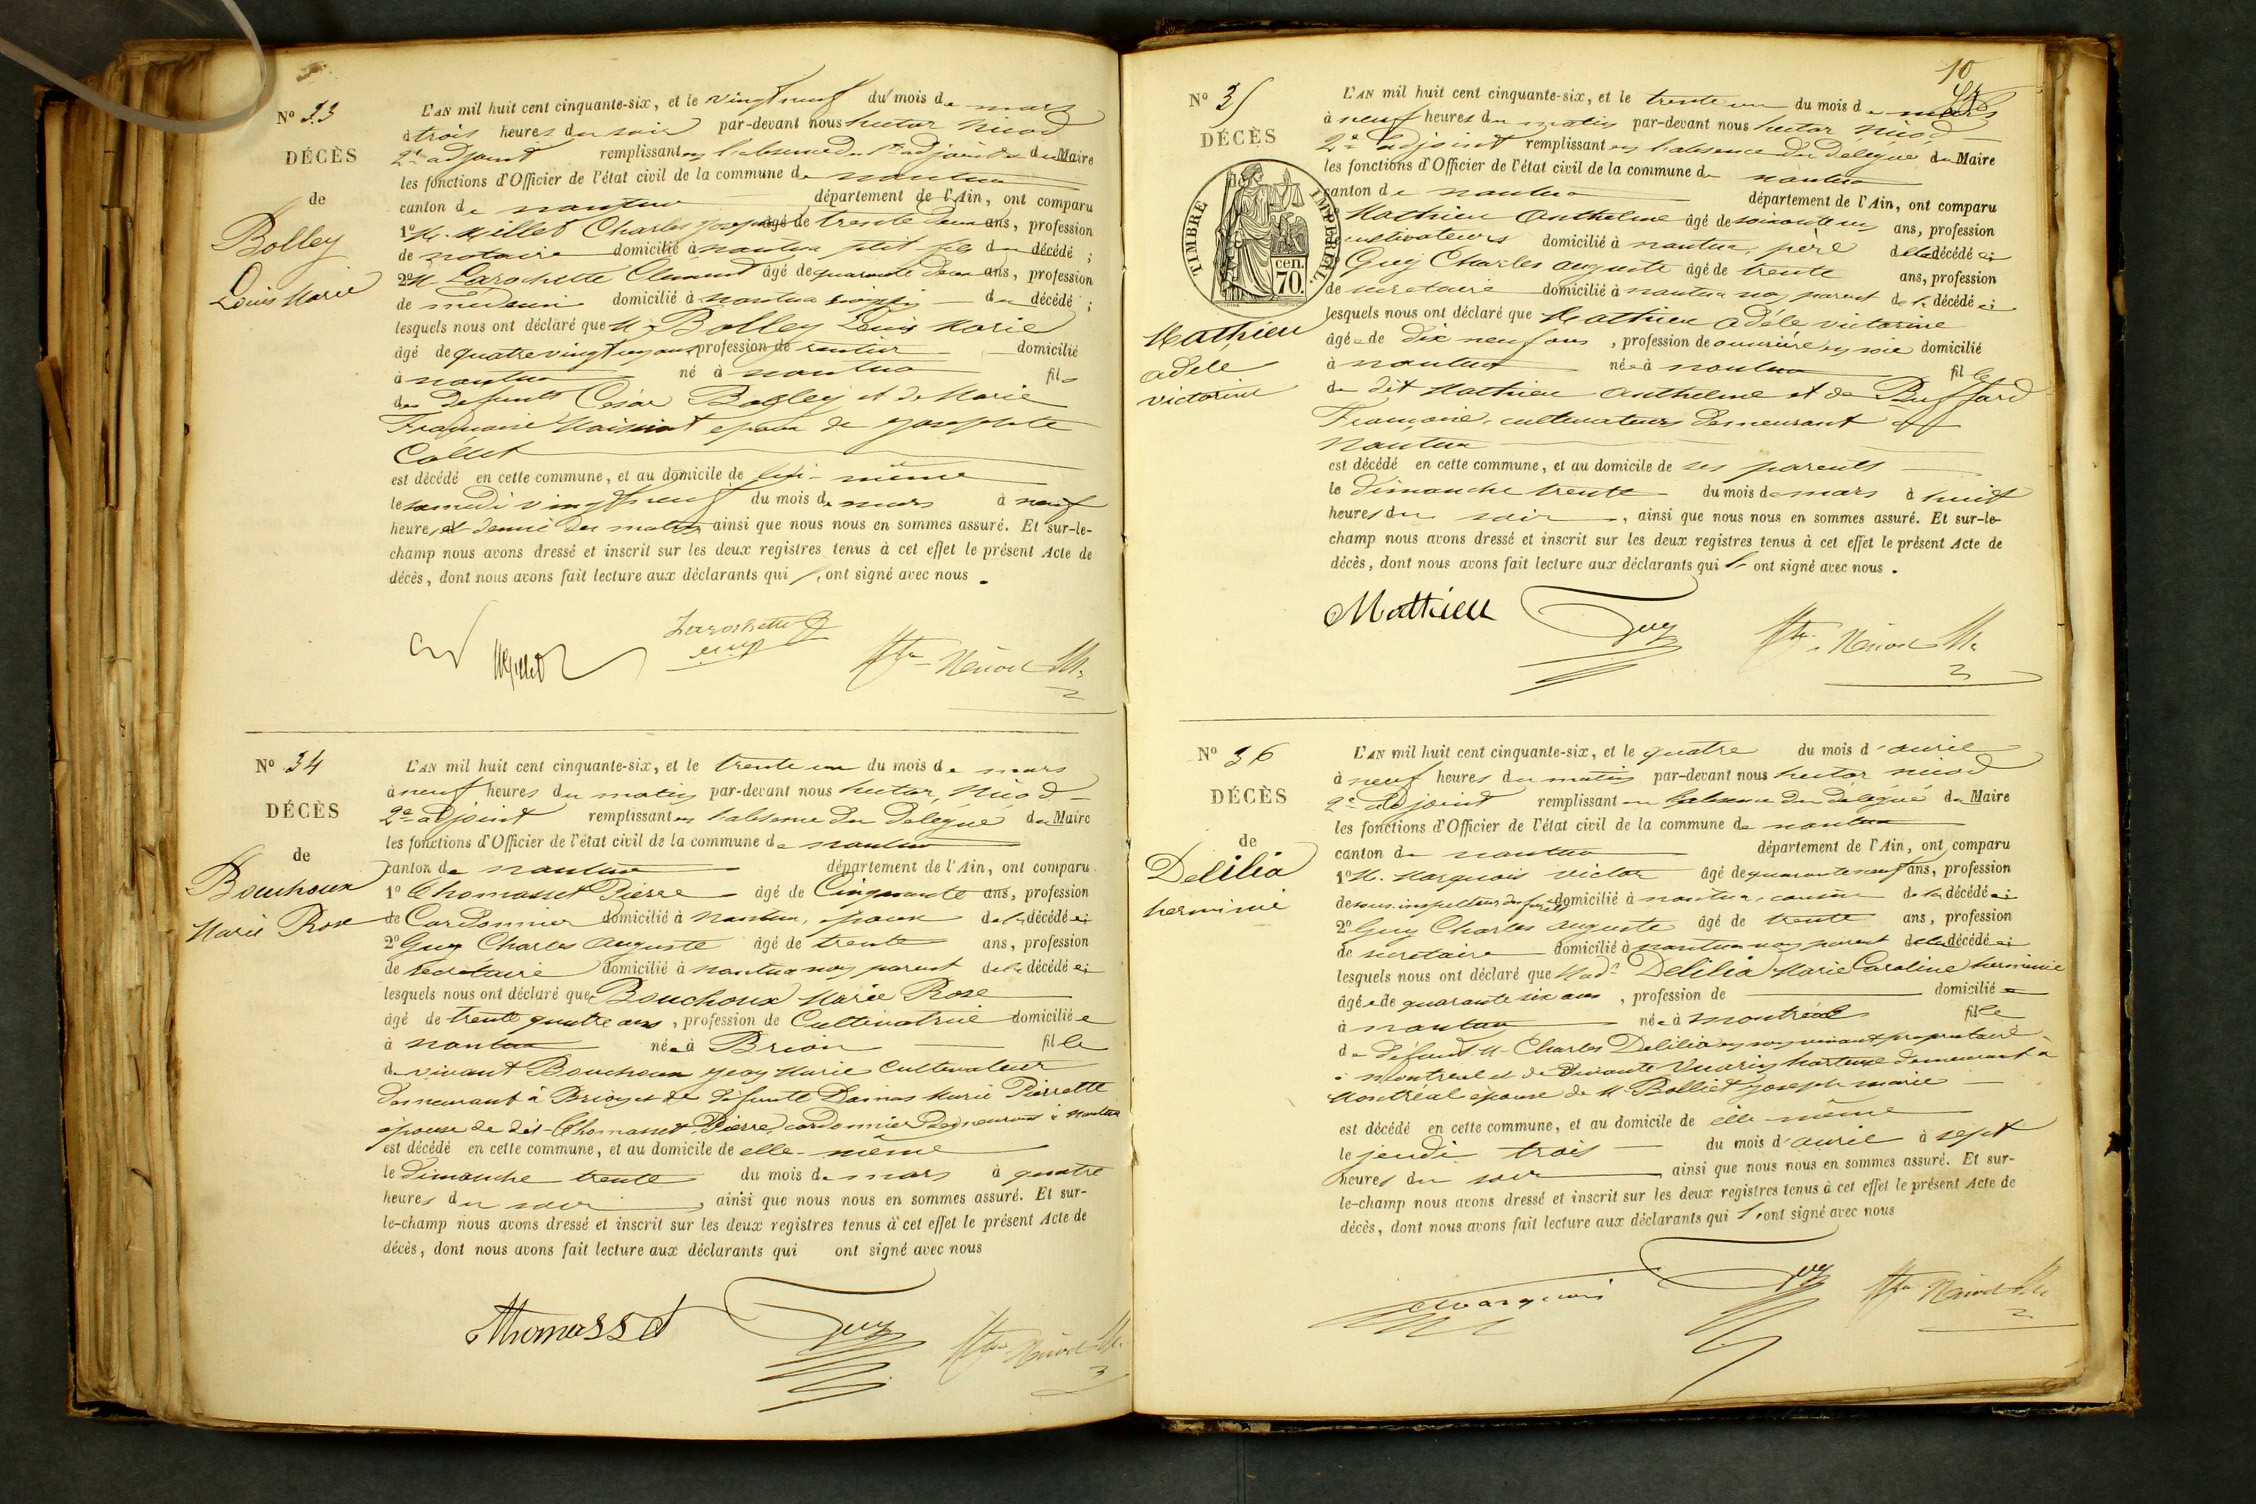 N° 33
DÉCÈS
de
Bolley
Louis Marie
L'AN mil huit cent cinquante-six, et le vingt neuf du mois de mars
à trois heures du soir par-devant nous hector Nicod
2e adjoint remplissant en l'absence du 1er adjoint du Maire
les fonctions d'Officier de l'état civil de la commune de nantua
canton de nantua département de l'Ain, ont comparu
1° M. Millet Charles Joseph âgé de trente deux ans, profession
de notaire domicilié à nantua petit fils du décédé ;
2° M Larochette Clément âgé de quarante deux ans, profession
de médecin domicilié à nantua voisin du décédé ;
lesquels nous ont déclaré que M Bolley Louis Marie
âgé de quatre vingt un ans profession de rentier domicilié
à nantua né à nantua fils
des défunts César Bolley et de Marie
Françoise époux de Josephte
Collet
est décédé en cette commune, et au domicile de lui-même
le samedi vingt neuf du mois de mars à neuf
heures et demie du matin ainsi que nous nous en sommes assuré. Et sur-le-
champ nous avons dressé et inscrit sur les deux registres tenus à cet effet le présent Acte de
décès, dont nous avons fait lecture aux déclarants qui l'ont signé avec nous.
Millet
Larochette
Nicod
N° 34
DÉCÈS
de
Bouchoux
Marie Rose
L'AN mil huit cent cinquante-six, et le trente un du mois de mars
à neuf heures du matin par-devant nous hector, Nicod
2e adjoint remplissant en l'absence du délégué du Maire
les fonctions d'Officier de l'état civil de la commune de nantua
canton de nantua département de l'Ain, ont comparu
1° Thomasset Pierre âgé de Cinquante ans, profession
de Cordonnier domicilié à Nantua, époux de la décédée ;
2° Guy Charles auguste âgé de trente ans, profession
de secrétaire domicilié à nantua non parent de la décédée ;
lesquels nous ont déclaré que Bouchoux Marie Rose
âgé de trente quatre ans, profession de Cultivatrice domiciliée
à nantua née à Brion fille
de vivant Bouchoux Jean Marie Cultivateur
demeurant à Brion et de défunte Marie Pierrette
épouse de dit Thomasset Pierre, cordonnier demeurant à nantua
est décédé en cette commune, et au domicile de elle-même
le Dimanche trente du mois de mars à quatre
heures du soir, ainsi que nous nous en sommes assuré. Et sur-
le-champ nous avons dressé et inscrit sur les deux registres tenus à cet effet le présent Acte de
décès, dont nous avons fait lecture aux déclarants qui ont signé avec nous
Thomasset
Guy
Nicod
10
N° 35
DÉCÈS
TIMBRE IMPÉRIAL.
cen.
70.
Mathieu
adèle
victorine
L'AN mil huit cent cinquante-six, et le trente un du mois de mars
à neuf heures du matin par-devant nous hector Nicod
2e adjoint remplissant en l'absence du délégué du Maire
les fonctions d'Officier de l'état civil de la commune de nantua
canton de nantua département de l'Ain, ont comparu
Mathieu Anthelme âgé de soixante un ans, profession
cultivateurs domicilié à nantua, père de la décédée ;
Guy Charles auguste âgé de trente ans, profession
de secretaire domicilié à nantua non parent de la décédée ;
lesquels nous ont déclaré que Mathieu adèle victorine
âgée de dix neuf ans, profession de ouvrière en soie domicilié
à nantua née à nantua fille
de dit Mathieu anthelme et de Buffard
Françoise, cultivateurs demeurant à
Nantua
est décédé en cette commune, et au domicile de ses parents
le dimanche trente du mois de mars à huit
heures du soir, ainsi que nous nous en sommes assuré. Et sur-le-
champ nous avons dressé et inscrit sur les deux registres tenus à cet effet le présent Acte de
décès, dont nous avons fait lecture aux déclarants qui l'ont signé avec nous.
Mathieu
Guy
Nicod
N° 36
DÉCÈS
de
Delilia
herminie
L'AN mil huit cent cinquante-six, et le quatre du mois d'avril
à neuf heures du matin par-devant nous hector nicod
2e adjoint remplissant en l'absence du délégué du Maire
les fonctions d'Officier de l'état civil de la commune de nantua
canton de nantua département de l'Ain, ont comparu
1° M. Marquois victor âgé de quarante neuf ans, profession
de sous inspecteur des forêts domicilié à nantua, cousin de la décédée ;
2° Guy Charles auguste âgé de trente ans, profession
de secretaire domicilié à nantua non parent de la décédée ;
lesquels nous ont déclaré que Made Delilia Marie Caroline herminie
âgée de quarante six ans, profession de domicilié
à nantua née à montréal fille
de défunt M. Charles Delilia en son vivant propriétaire
à montreal et de vivante hortense demeurant à
Montréal épouse de M. Bolliet Joseph marie
est décédé en cette commune, et au domicile de elle même
le jeudi trois du mois d'avril à sept
heures du soir ainsi que nous nous en sommes assuré. Et sur-
le-champ nous avons dressé et inscrit sur les deux registres tenus à cet effet le présent Acte de
décès, dont nous avons fait lecture aux déclarants qui l'ont signé avec nous
Marquois
Guy
Nicod